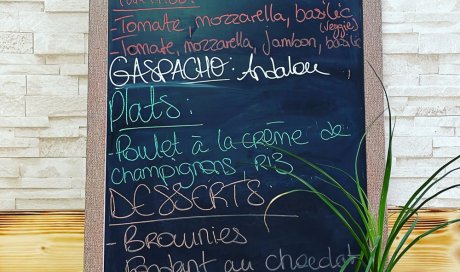 - Tomate, mozzarella, basilic
(veggies)
- Tomate, mozzarella, jambon, basilic
GASPACHO: Andalou
Plats:
- Poulet à la crème de
champignons, RIZ
DESSERTS:
- BROWNIES
- Fondant au chocolat